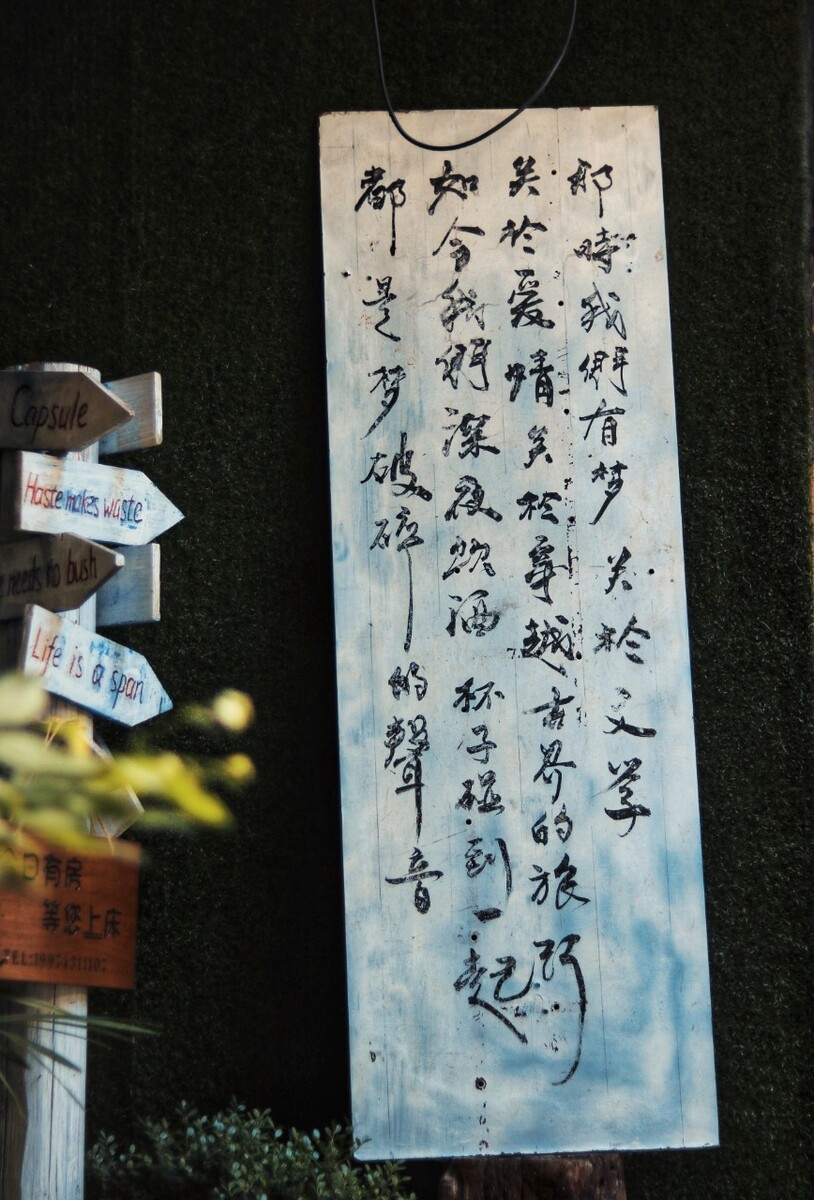 那時我們有梦 关於文学
关於爱情 关於穿越古界的旅行
如今我們深夜飲酒 杯子碰到一起
都是梦破碎的聲音
Capsule
Haste makes waste
needs no bush
Life is a span
日有房
等您上床
TEL:19974311107